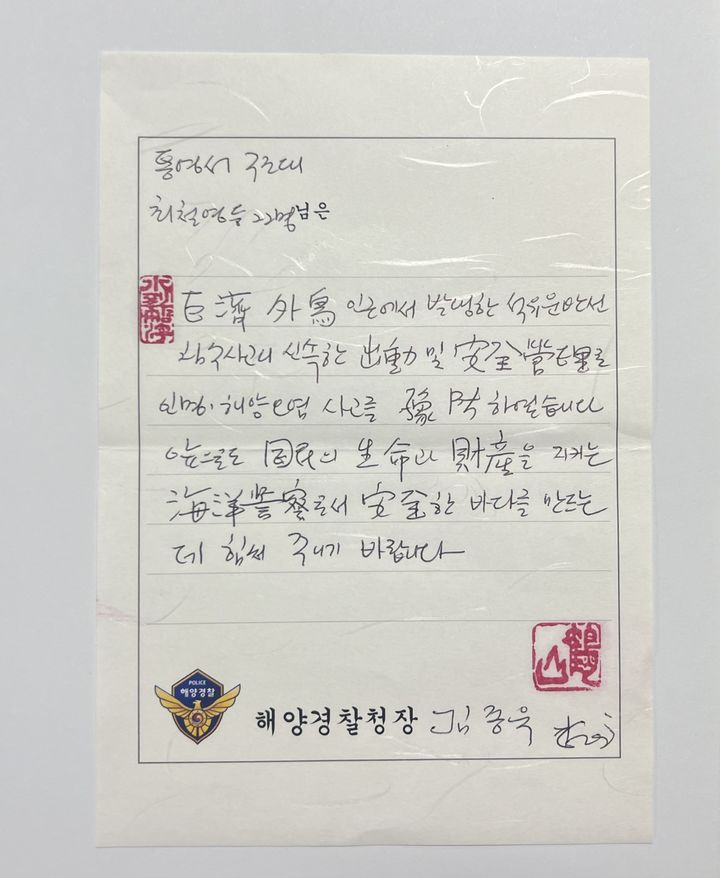 통영서 구조대
최철영 등 22명님은
巨濟 外島 인근에서 발생한 석유운반선
침수사고시 신속한 出動 및 安全管理를
인명, 해양오염 사고를 豫防 하였습니다
앞으로도 国民의 生命과 財産을 지키는
海洋警察로서 安全한 바다를 만드는
데 힘써 주시기 바랍니다
POLICE
해양경찰
해양경찰청장 김종욱